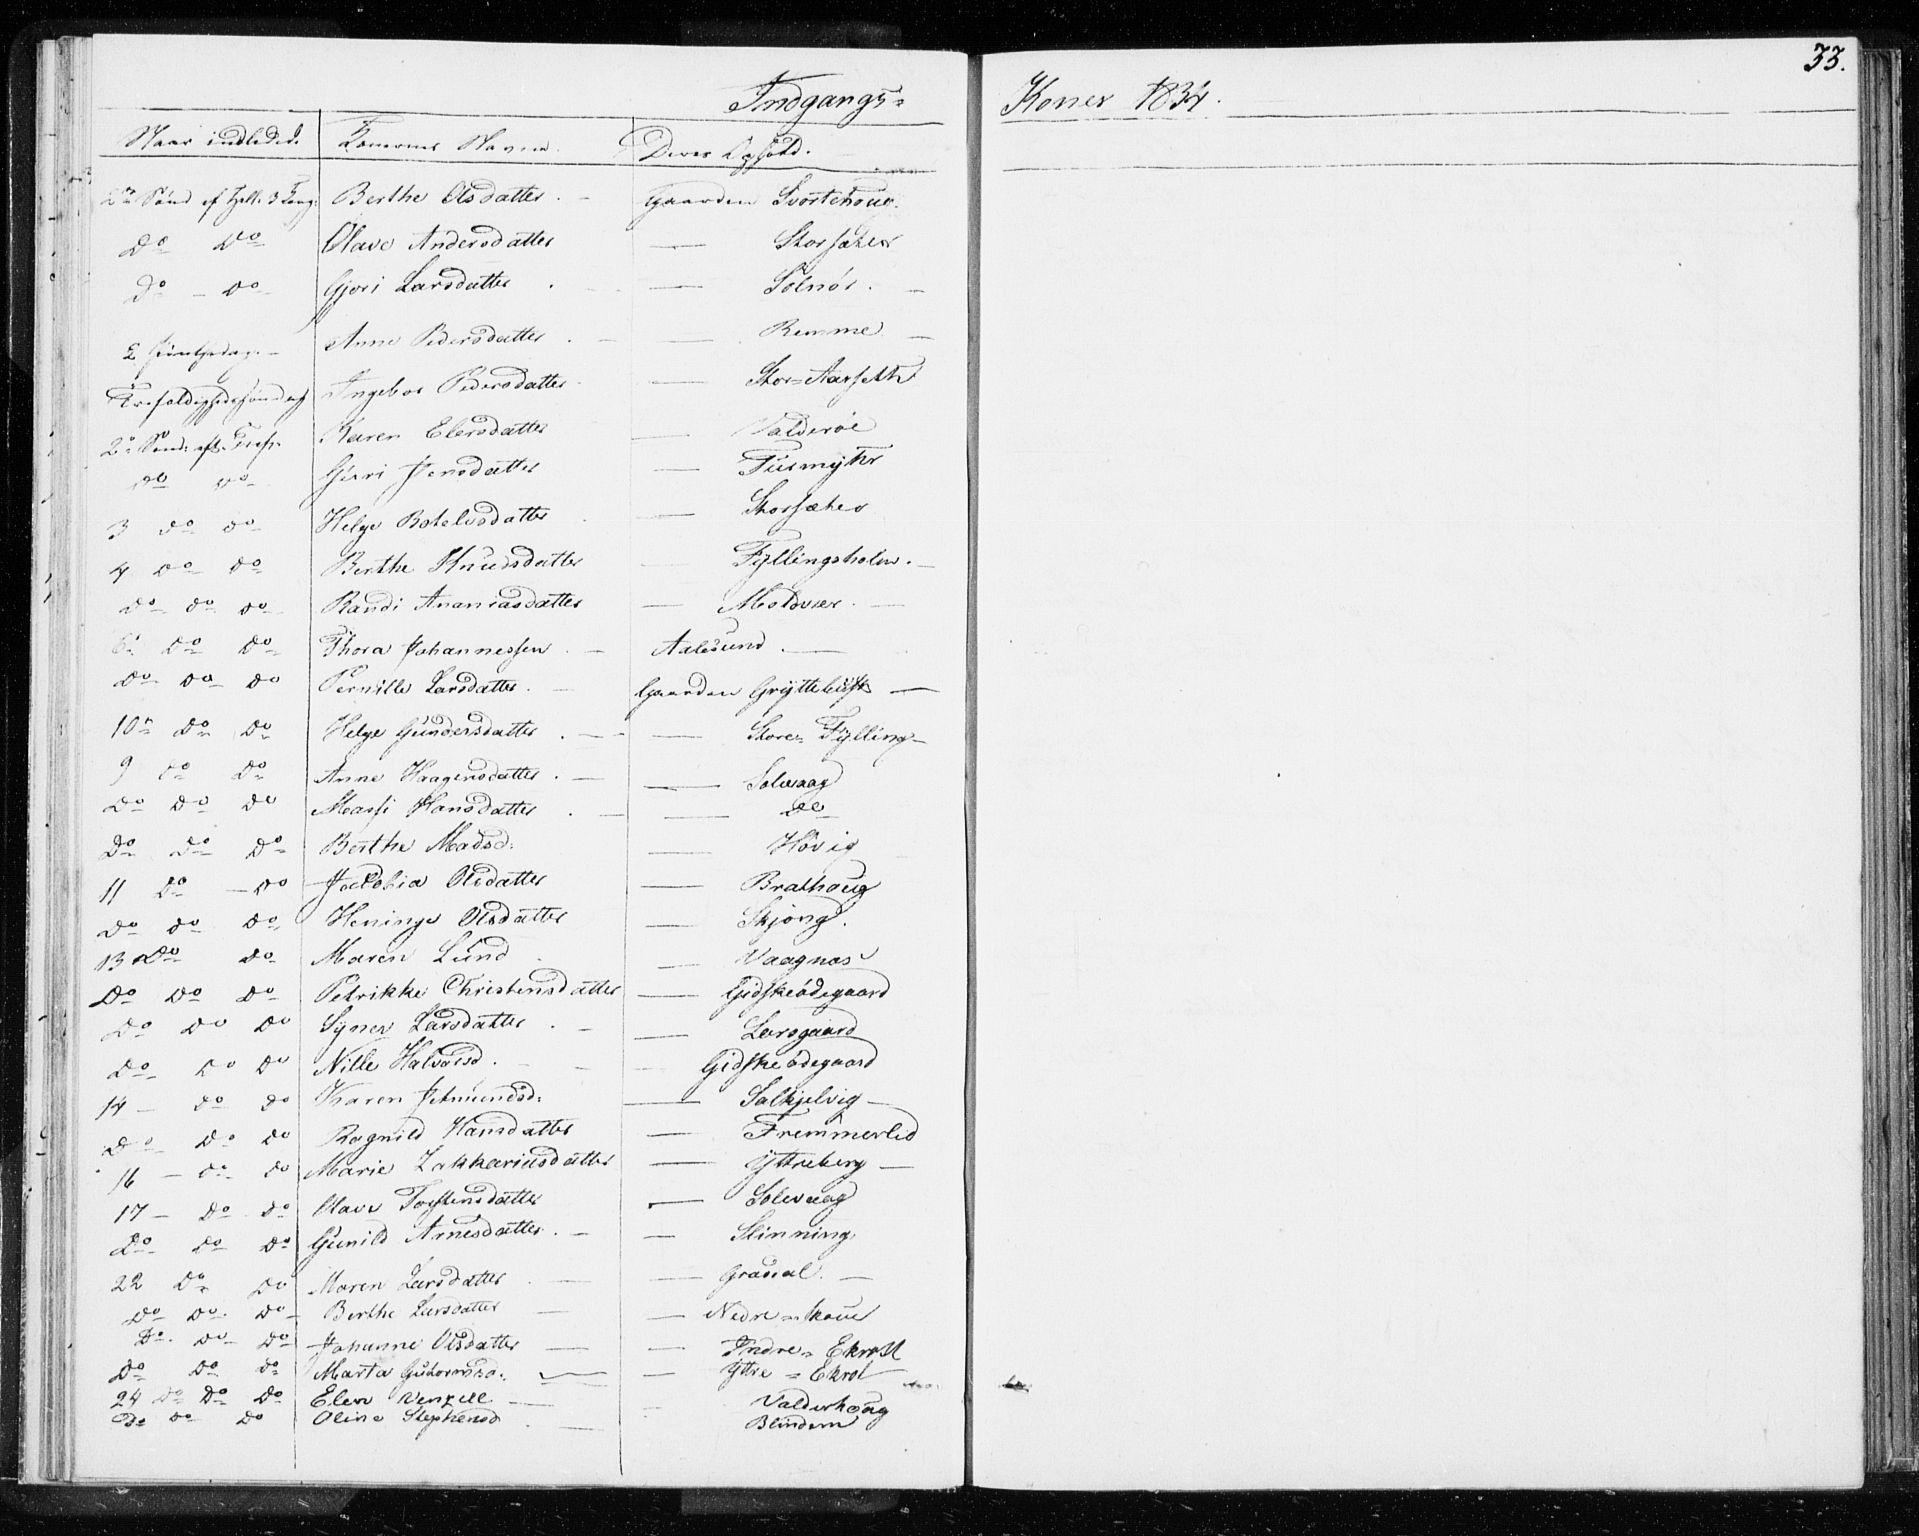 33.
Indgangs- Koner 1834.
Naar indledede Konernes Navne Deres Ophold.
2den Sønd. ef Hell. 3 Kong. Berthe Olsdatter. - Gaarden Svortehoug.
Do Do Olave Andersdatter — Storsæter
Do - Do Gjøri Larsdatter . - — Solnør. -
2 Anne Pedersdatter . - — Remme -
Trefoldighedssøndag Ingebor Pedersdatter — Stor-Aarseth
2d Sønd: eft. Tref. Karen Elersdatter — Valderøe
Do Do Giøri Jensdatter — Tuemyhr
3 Do Do Helge Botelvsdatter — Storsæter
4 Do Do Berthe Knudsdatter - Fyllingsholm. -
Do Do Do Randi Ananiasdatter — Moldvær. -
6 Do Do Thora Johannessen . - Aalesund . -
Do Do Do Pernille Larsdatter. - Gaarden Gryttebust —
10n Do Do Helge Gundersdatter . - — Store-Fylling -
9 Do Do Anne Haagensdatter . - — Solevaag
Do Do Do Massi Hansdatter . - — Do
Do Do Do Berthe Madsd: — Høvig
11 Do - Do Jacobia Olsdatter — Brathoug
Do Do Do Heninge Olsdatter — Skjong.
13 Do Do Maren Lund — Vaagnæs
Do Do Do Petrikke Christensdatter — Gidskeødegaard
Do Do Do Syner Larsdatter . - — Larsgaard
Do Do Do Nille Halvorsd. - - Gidskeødegaard
14 - Do Do Karen Jetmundsd: — Solkjelvig -
Do Do Do Ragnild Hansdatter — Fremmerlid
16 - Do Do Marie Zakkariusdatter — Yttreberg —
17 - Do Do Olave Torstensdatter — Solevaag
Do Do Do Gunild Arnesdatter. - — Slinning
22 Do Do Maren Larsdatter . - — Grausal. -
Do Do Do Berthe Larsdatter - — Nedre-Skoue
Do. Do Do Johanne Olsdatter - — Indre-Ekrost
Do Do Do Marta Guttormsd. — - Yttre-Ekrol
24 Do Do Do Elen Venzell - - Valderhoug
Do Do Do Oline Stephensd - Blindem